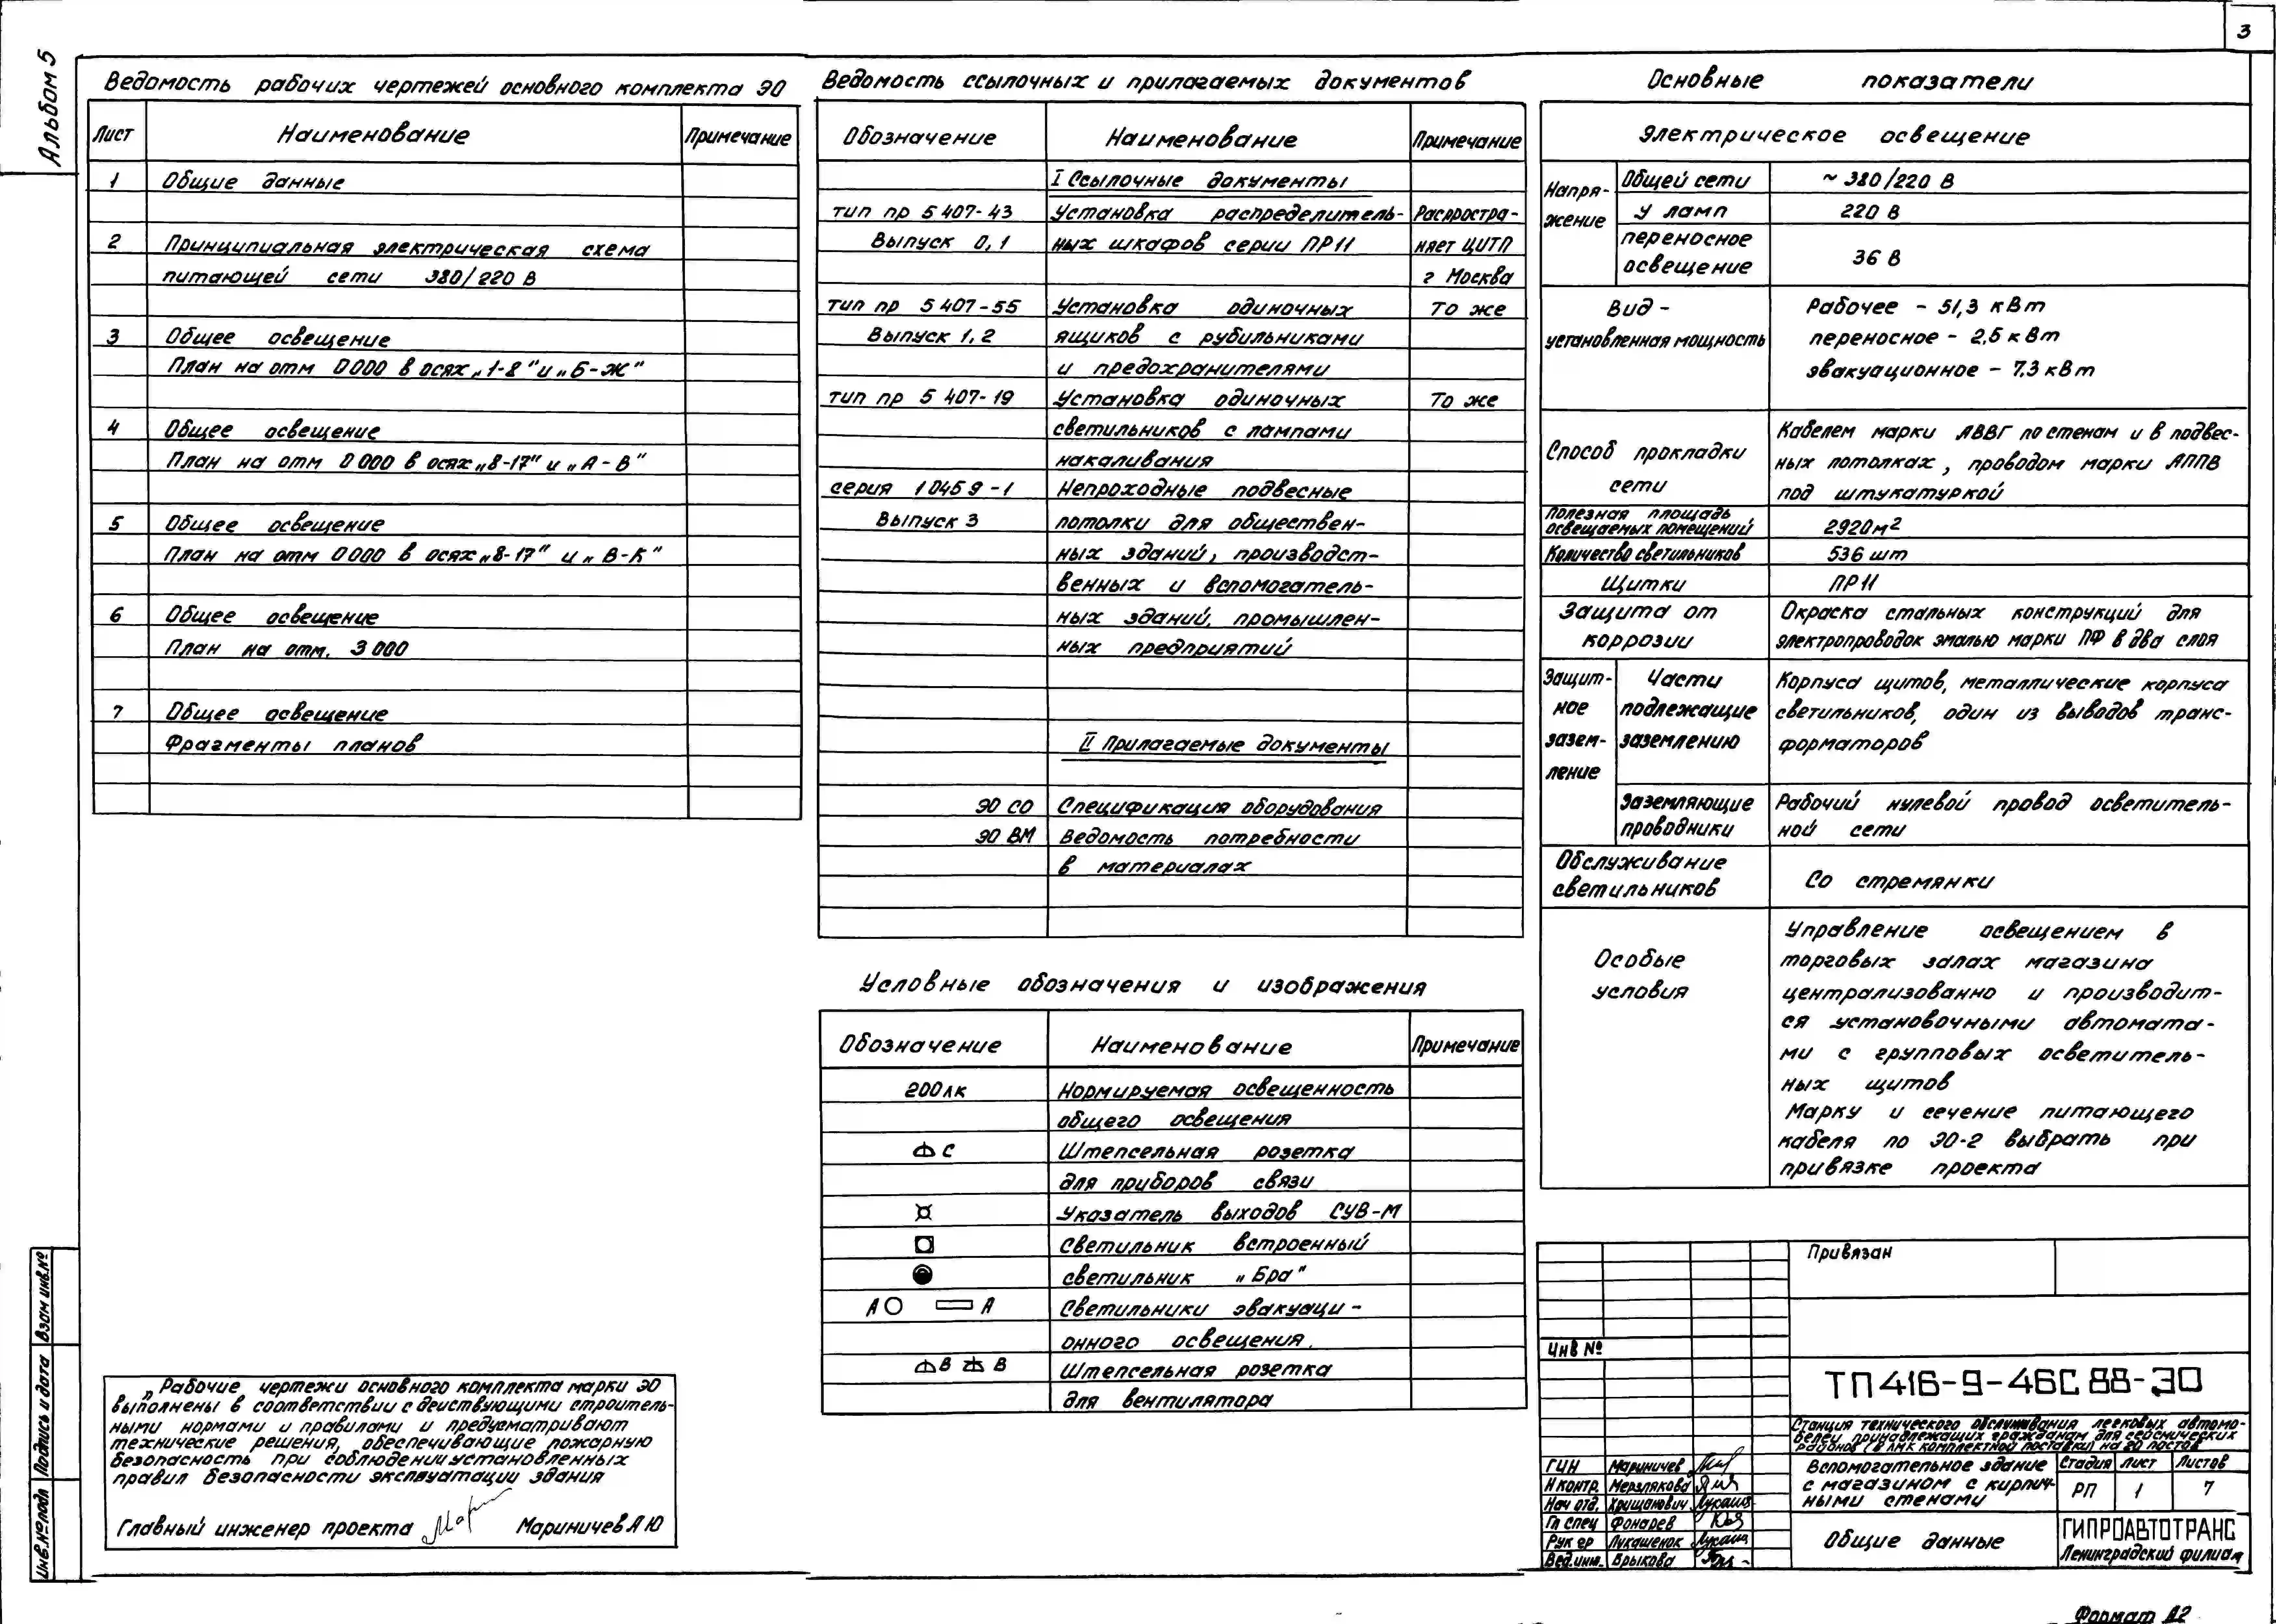 3
Альбом 5
Ведомость рабочих чертежей основного комплекта ЭО
Лист Наименование Примечание
1 Общие данные
2 Принципиальная электрическая схема
питающей сети 380/220 В
3 Общее освещение
План на отм 0000 в осях „1-8" и „Б-Ж"
4 Общее освещение
План на отм 0000 в осях „8-17" и „А-В"
5 Общее освещение
План на отм 0000 в осях „8-17" и „В-К"
6 Общее освещение
План на отм. 3000
7 Общее освещение
Фрагменты планов
„Рабочие чертежи основного комплекта марки ЭО
выполнены в соответствии с действующими строитель-
ными нормами и правилами и предусматривают
технические решения, обеспечивающие пожарную
безопасность при соблюдении установленных
правил безопасности эксплуатации здания
Главный инженер проекта Мариничев А Ю
Ведомость ссылочных и прилагаемых документов
Обозначение Наименование Примечание
I Ссылочные документы
тип пр 5 407-43 Установка распределитель- Распростра-
Выпуск 0,1 ных шкафов серии ПР11 няет ЦИТП
г Москва
тип пр 5 407-55 Установка одиночных То же
Выпуск 1,2 ящиков с рубильниками
и предохранителями
тип пр 5 407-19 Установка одиночных То же
светильников с лампами
накаливания
серия 1 0459-1 Непроходные подвесные
Выпуск 3 потолки для обществен-
ных зданий, производст-
венных и вспомогатель-
ных зданий, промышлен-
ных предприятий
II Прилагаемые документы
ЭО СО Спецификация оборудования
ЭО ВМ Ведомость потребности
в материалах
Условные обозначения и изображения
Обозначение Наименование Примечание
200лк Нормируемая освещенность
общего освещения
С Штепсельная розетка
для приборов связи
Указатель выходов СУВ-М
Светильник встроенный
светильник „Бра"
А А Светильники эвакуаци-
онного освещения.
В В Штепсельная розетка
для вентилятора
Основные показатели
Электрическое освещение
Напря-
жение
Общей сети ~ 380/220 В
У ламп 220 В
переносное
освещение 36 В
Вид - Рабочее - 51,3 кВт
установленная мощность переносное - 2,5 кВт
эвакуационное - 7,3 кВт
Способ прокладки
сети
Кабелем марки АВВГ по стенам и в подвес-
ных потолках, проводом марки АППВ
под штукатуркой
Полезная площадь
освещаемых помещений 2920м²
Количество светильников 536 шт
Щитки ПР11
Защита от Окраска стальных конструкций для
коррозии электропроводок эмалью марки ПФ в два слоя
Защит-
ное
зазем-
ление
Части
подлежащие
заземлению
Корпуса щитов, металлические корпуса
светильников, один из выводов транс-
форматоров
Заземляющие Рабочий нулевой провод осветитель-
проводники ной сети
Обслуживание
светильников
Со стремянки
Особые
условия
Управление освещением в
торговых залах магазина
централизованно и производит-
ся установочными автомата-
ми с групповых осветитель-
ных щитов
Марку и сечение питающего
кабеля по ЭО-2 выбрать при
привязке проекта
Привязан
Инв №
ТП 416-9-46С 88-ЭО
Станция технического обслуживания легковых автомо-
билей, принадлежащих гражданам для сейсмических
районов (в ЛМК комплектной поставки) на 20 постов
ГИП Мариничев
Н контр. Мерзлякова
Нач отд. Хрищанович
Гл спец Фонарев
Рук гр Лукашенок
Вед.инж. Брыкова
Вспомогательное здание
с магазином с кирпич-
ными стенами
Стадия Лист Листов
РП 1 7
Общие данные
ГИПРОАВТОТРАНС
Ленинградский филиал
Инв.№подл Подпись и дата Взам инв.№
Формат А2